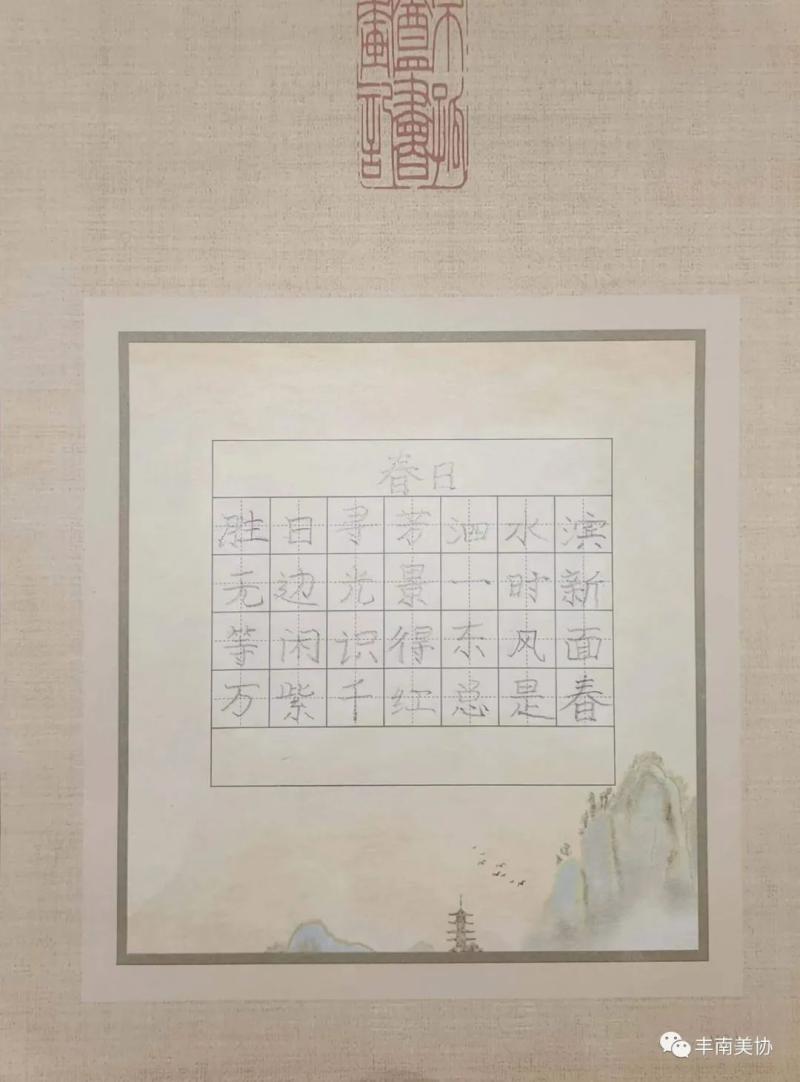 春日
胜日寻芳泗水滨
无边光景一时新
等闲识得东风面
万紫千红总是春
丰南美协